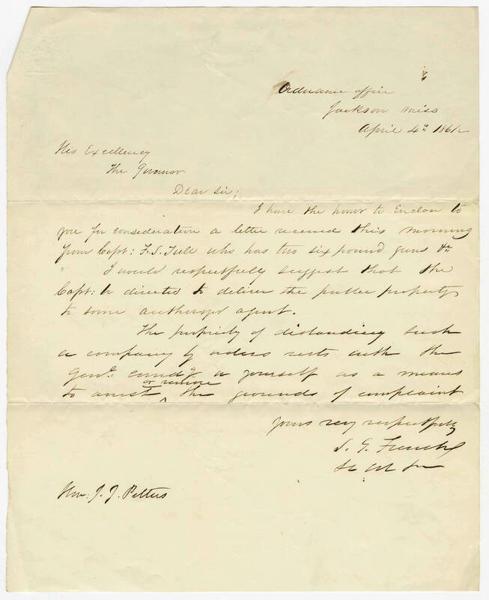 Ordnance office
Jackson Miss
April 4th 1861
His Excellency
The Governor
Dear Sir;
I have the honor to Enclose to
you for consideration a letter received this morning
from Capt: F. S. Tull who has two six pound guns &c
I would respectfully suggest that the
Capt: be directed to deliver the public property
to some authorized agent.
The propriety of disbanding such
a company by orders rests with the
Genl. Comdg. or yourself as a means
or remove
to arrest the grounds of complaint
Yours very respectfully
S. G. French
Hon: J. J. Pettus